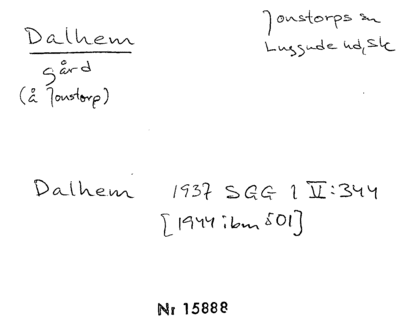 Dalhem
gård
(å Jonstorp)
Jonstorps sn
Luggude hd, Sk
Dalhem 1937 SGG 1 V:344
[1944 ibm 501]
Nr 15888